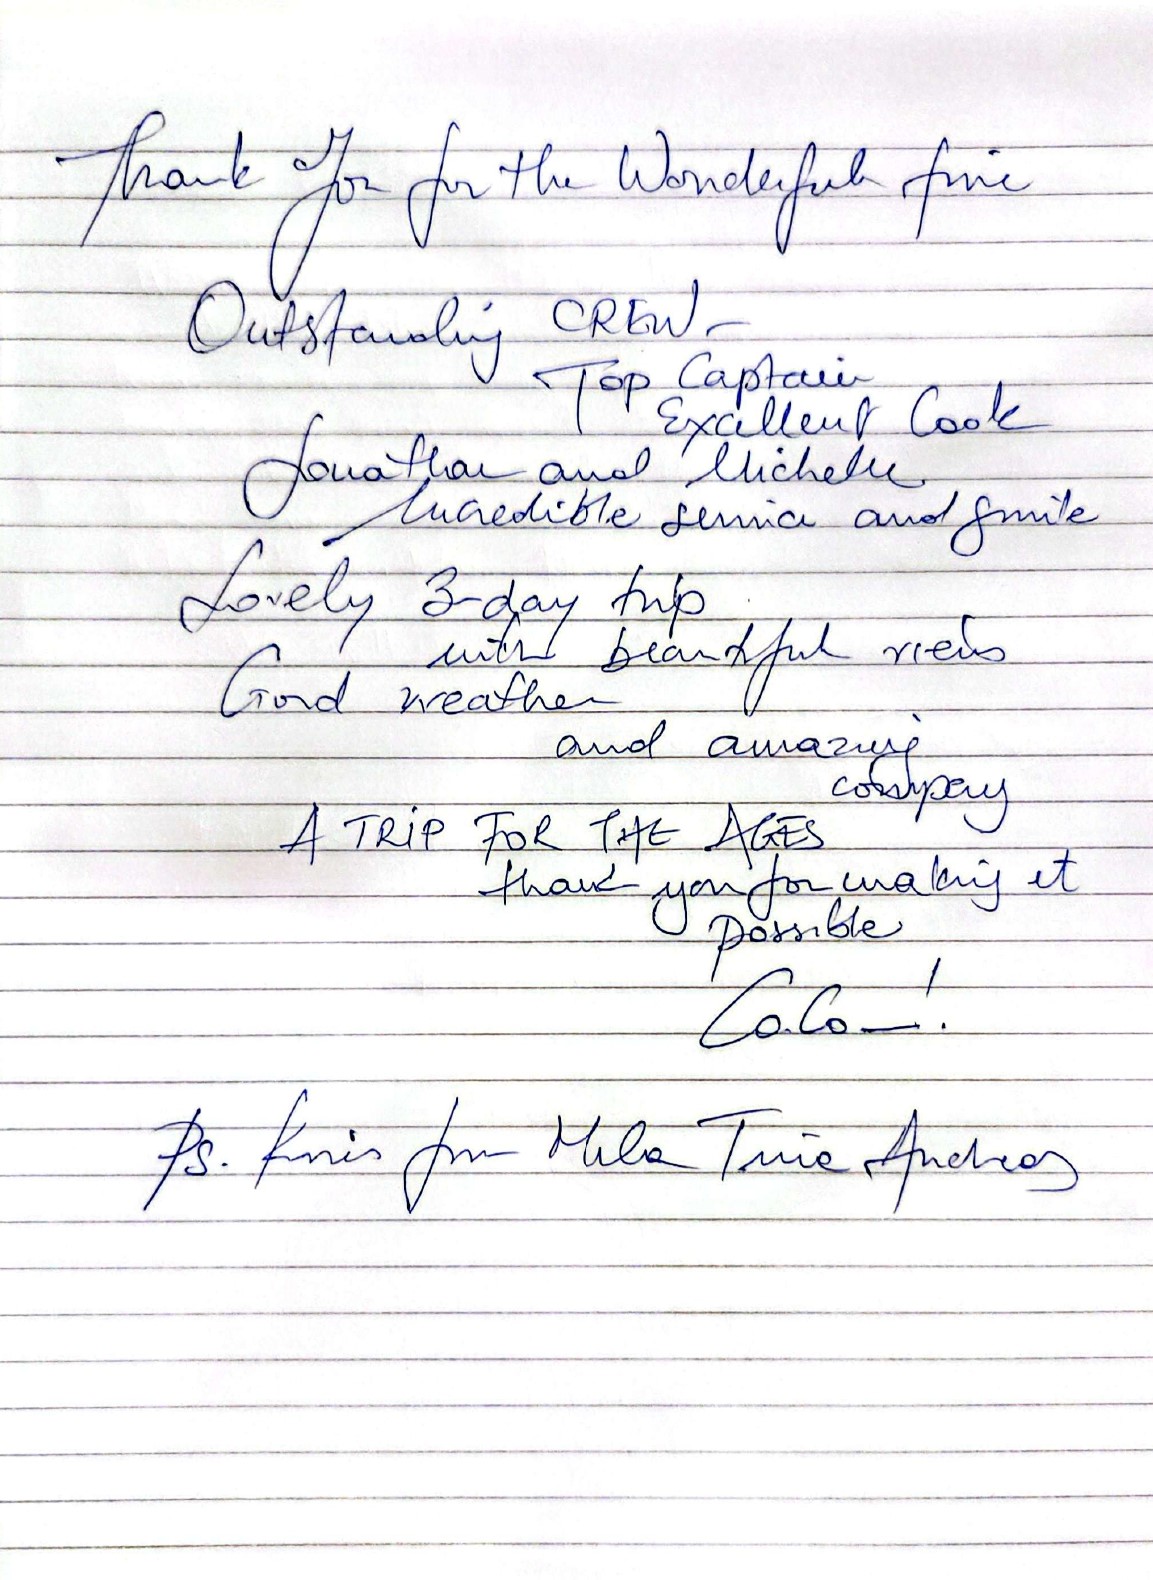 Thank You for the Wonderful time
Outstanding CREW -
Top Captain
Excellent Cook
Jonathan and Michelle
Incredible service and smile
Lovely 3-day trip
with beautiful views
Good weather
and amazing
company
A TRIP FOR THE AGES
thank you for making it
possible
CoCo - !
Ps. from Mila Tina Andreas